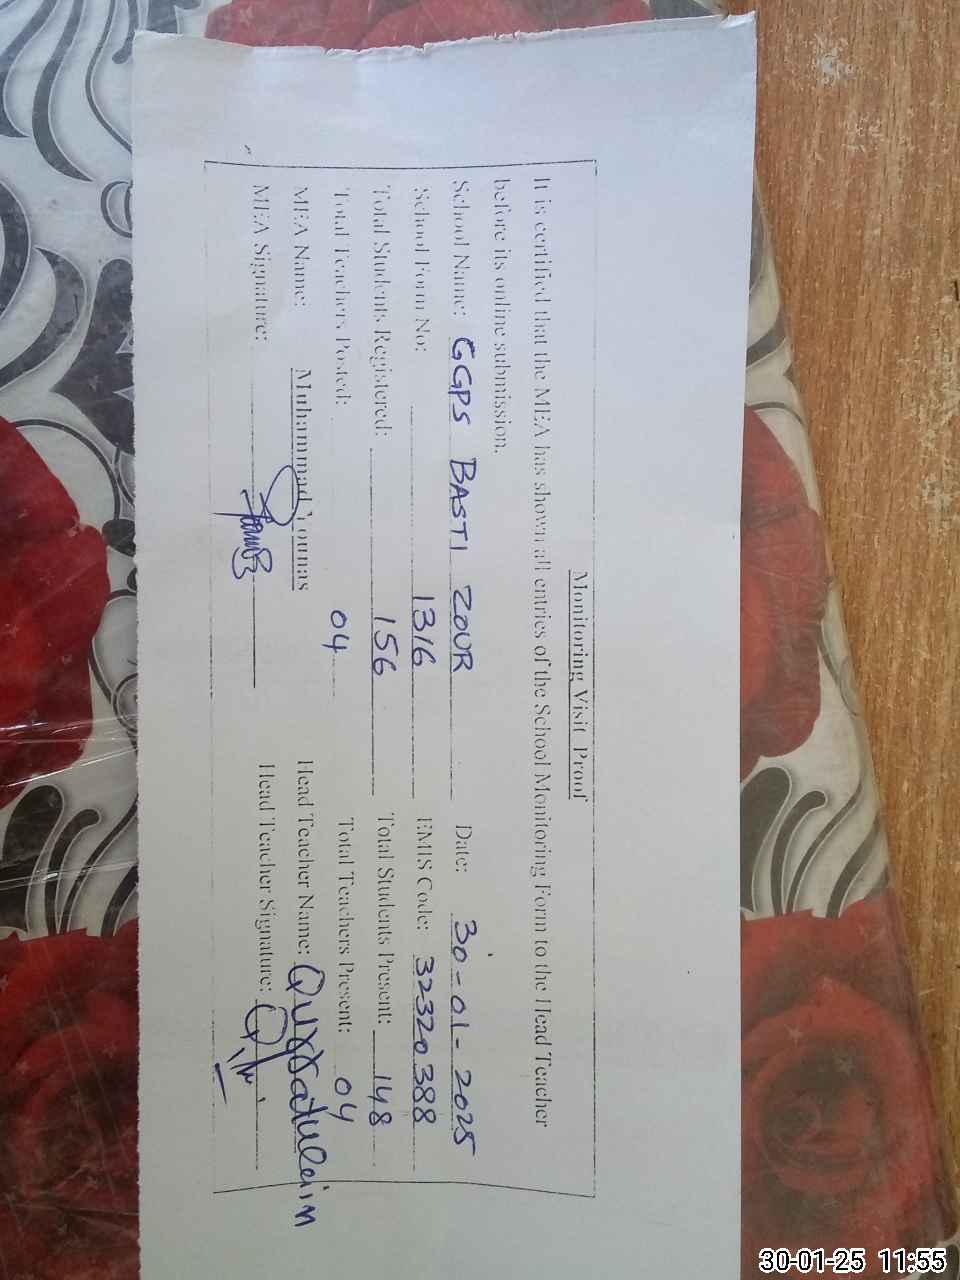 Monitoring Visit Proof
It is certified that the MEA has shown all entries of the School Monitoring Form to the Head Teacher
before its online submission.
School Name: GGPS BASTI ZOUR Date: 30-01-2025
School Form No: 1316 EMIS Code: 32320388
Total Students Registered: 156 Total Students Present: 148
Total Teachers Posted: 04 Total Teachers Present: 04
MEA Name: Muhammad Younas Head Teacher Name: Qurratulein
MEA Signature: Head Teacher Signature:
30-01-25 11:55